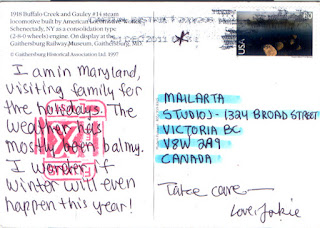 1918 Buffalo Creek and Gauley #14 steam
locomotive built by American Locomotive Works,
Schenectady, NY as a consolidation type
(2-8-0 wheels) engine. On display at the
Gaithersburg Railway Museum, Gaithersburg, MD
© Gaithersburg Historical Association Ltd. 1997
2011
USA
80
I am in Maryland,
visiting family for
the holidays. The
weather has
mostly been balmy.
I wonder if
winter will even
happen this year!
MAILARTA
STUDIOS - 1322 BROAD STREET
VICTORIA BC
V8W 2A9
CANADA
Take care—
Love, Jackie